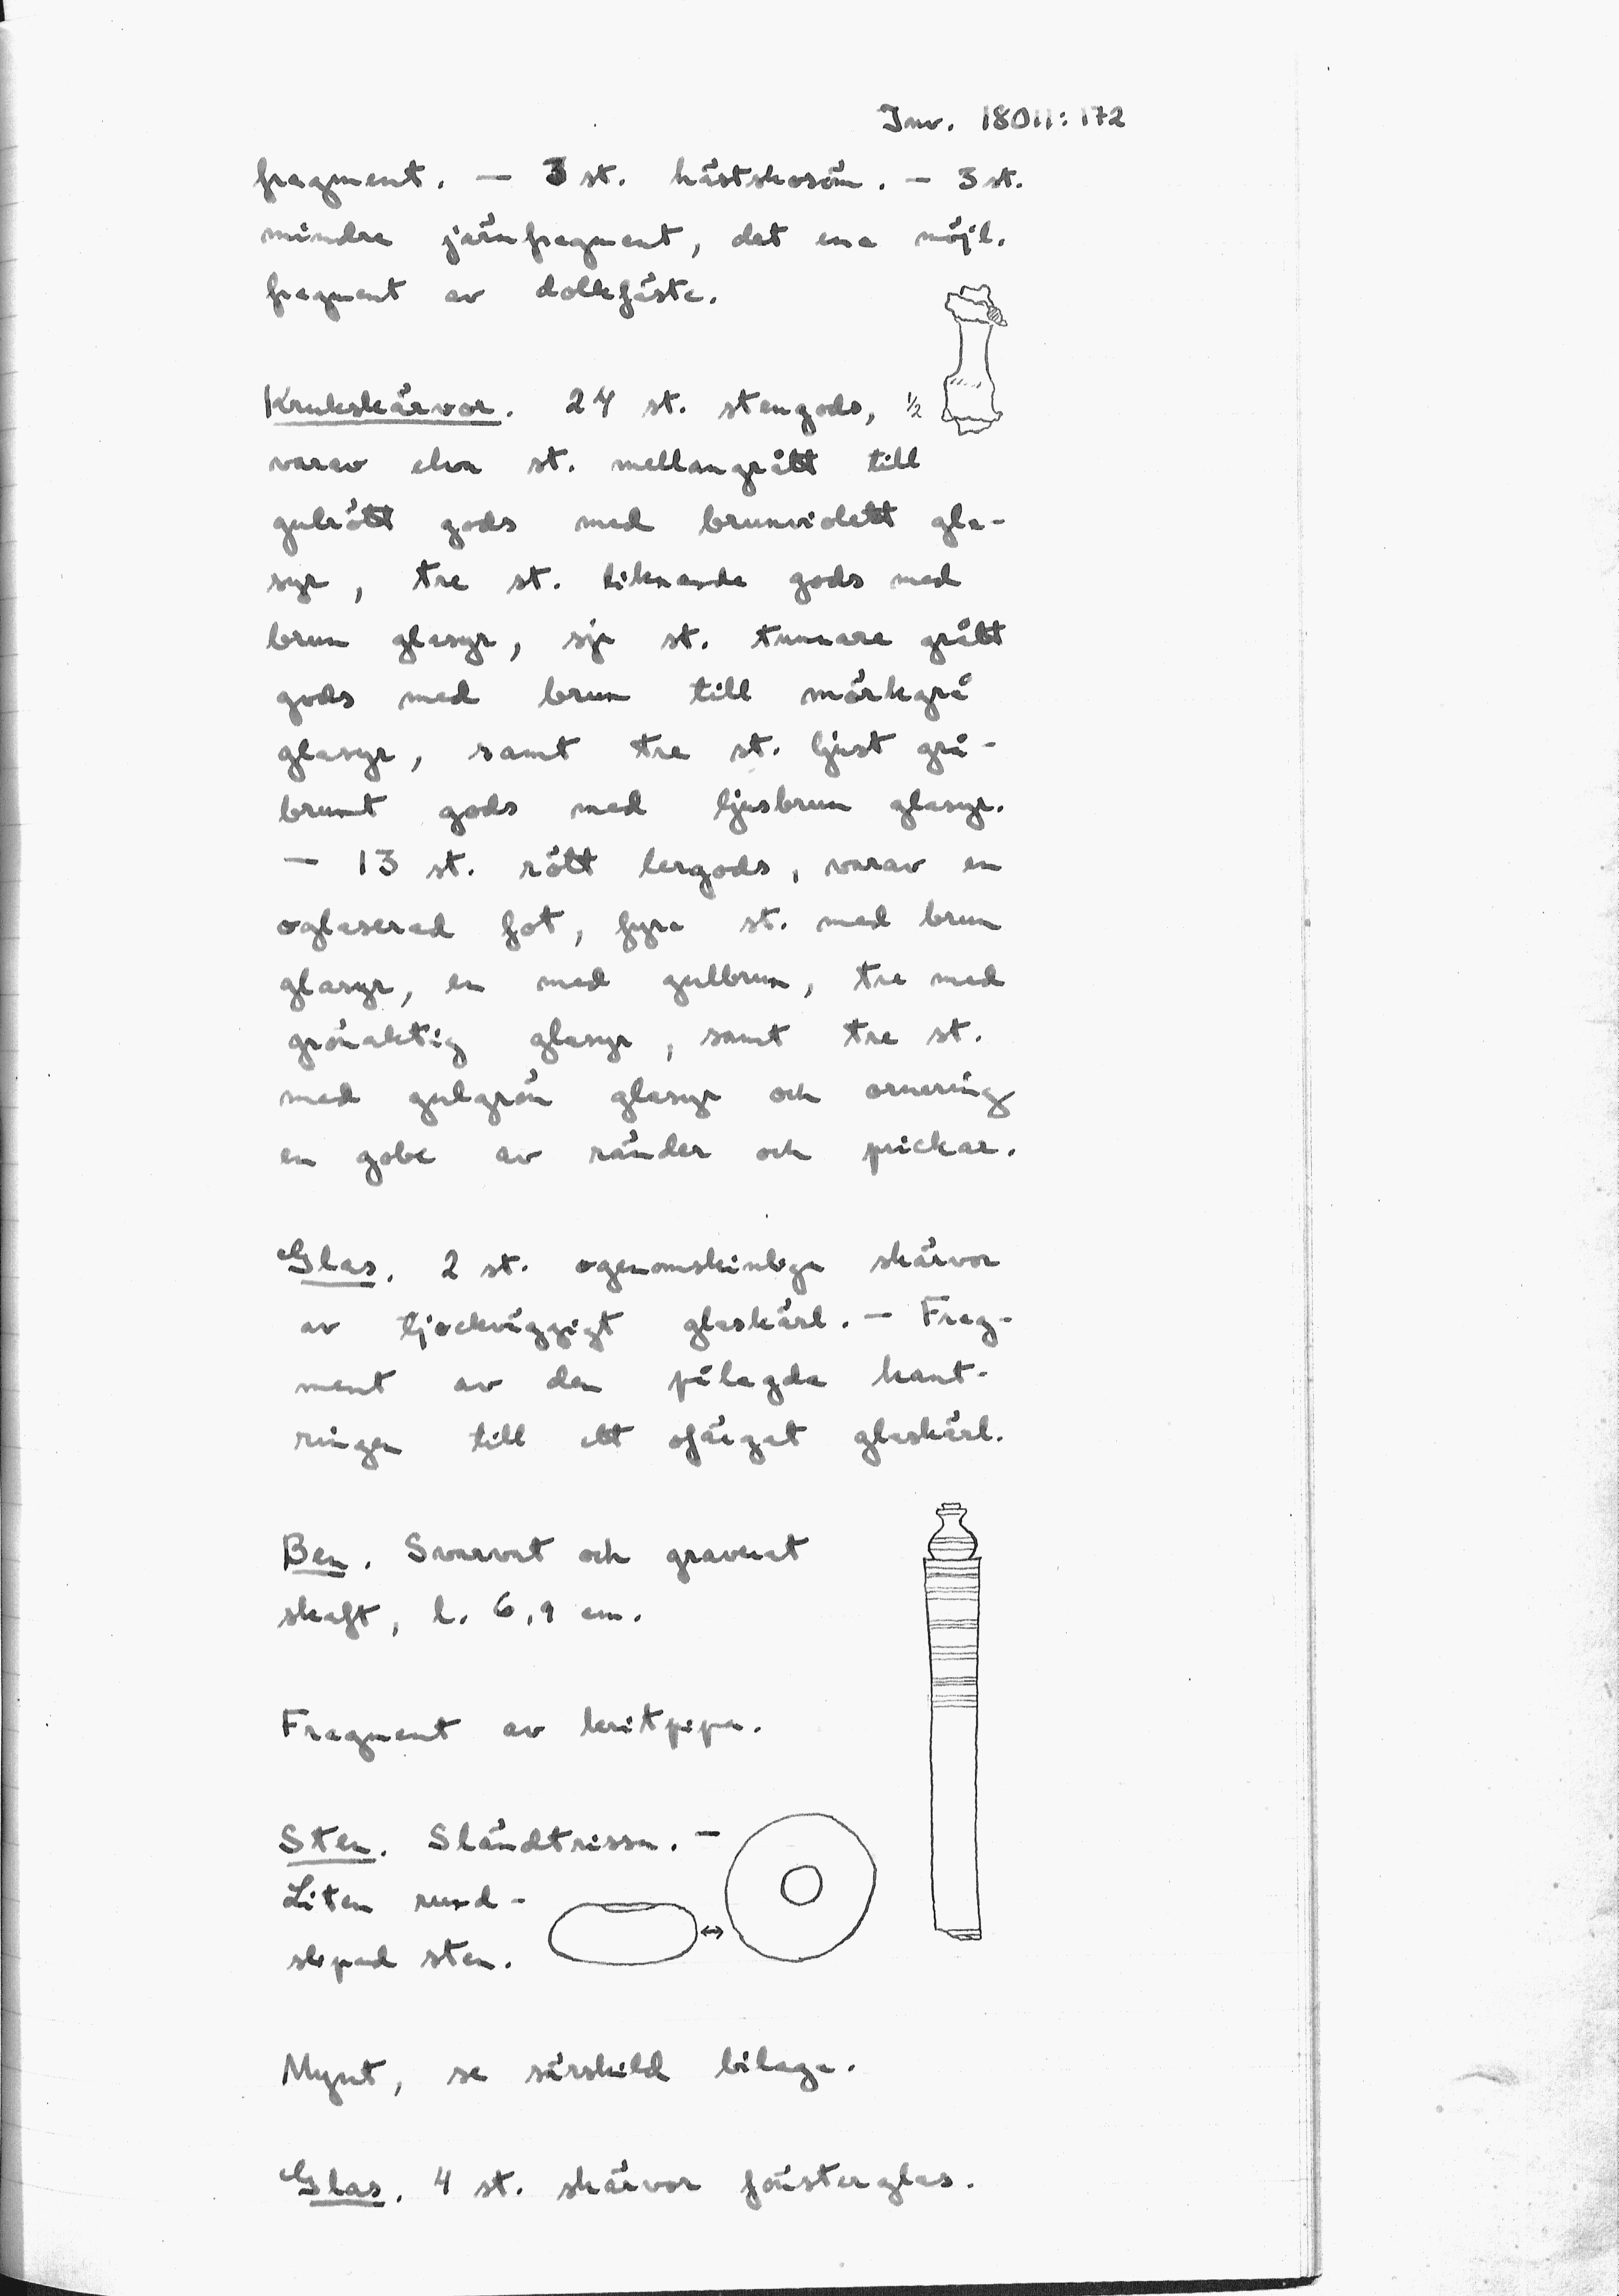 Inv. 18011:172
fragment. — 3 st. hästskosöm. — 3 st.
mindre järnfragment, det ena möjl.
fragment av dolkfäste.
Krukskärvor. 24 st. stengods, ½
varav elva st. mellangrått till
gulrött gods med brunviolett gla-
syr, tre st. liknande gods med
brun glasyr, sju st. tunnare grått
gods med brun till mörkgrå
glasyr, samt tre st. ljust grå-
brunt gods med ljusbrun glasyr.
— 13 st. rött lergods, varav en
oglaserad fot, fyra st. med brun
glasyr, en med gulbrun, tre med
grönaktig glasyr, samt tre st.
med gulgrön glasyr och ornering
en gobe av ränder och prickar.
Glas. 2 st. ogenomskinliga skärvor
av tjockväggigt glaskärl. — Frag-
ment av den pålagda kant-
ringen till ett ofärgat glaskärl.
Ben. Svarvat och graverat
skaft, l. 6,9 cm.
Fragment av kritpipa.
Sten. Sländtrissa. —
Liten rund-
slipad sten.
Mynt, se särskild bilaga.
Glas. 4 st. skärvor fönsterglas.